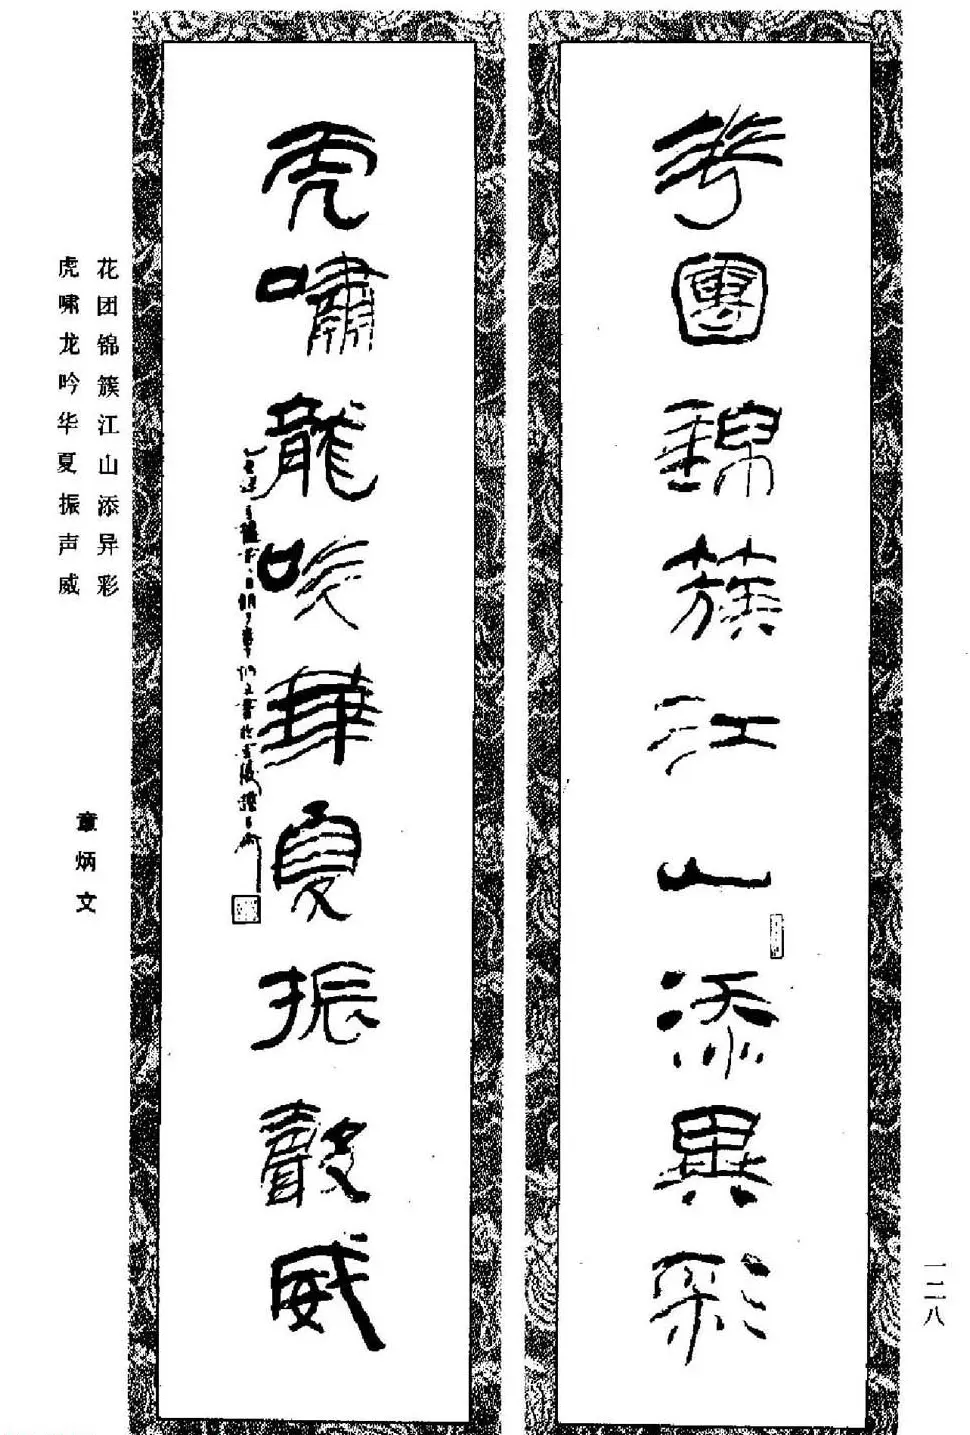 花團錦簇江山添異彩
虎嘯龍吟華夏振聲威
花团锦簇江山添异彩
虎啸龙吟华夏振声威
章炳文
一二八